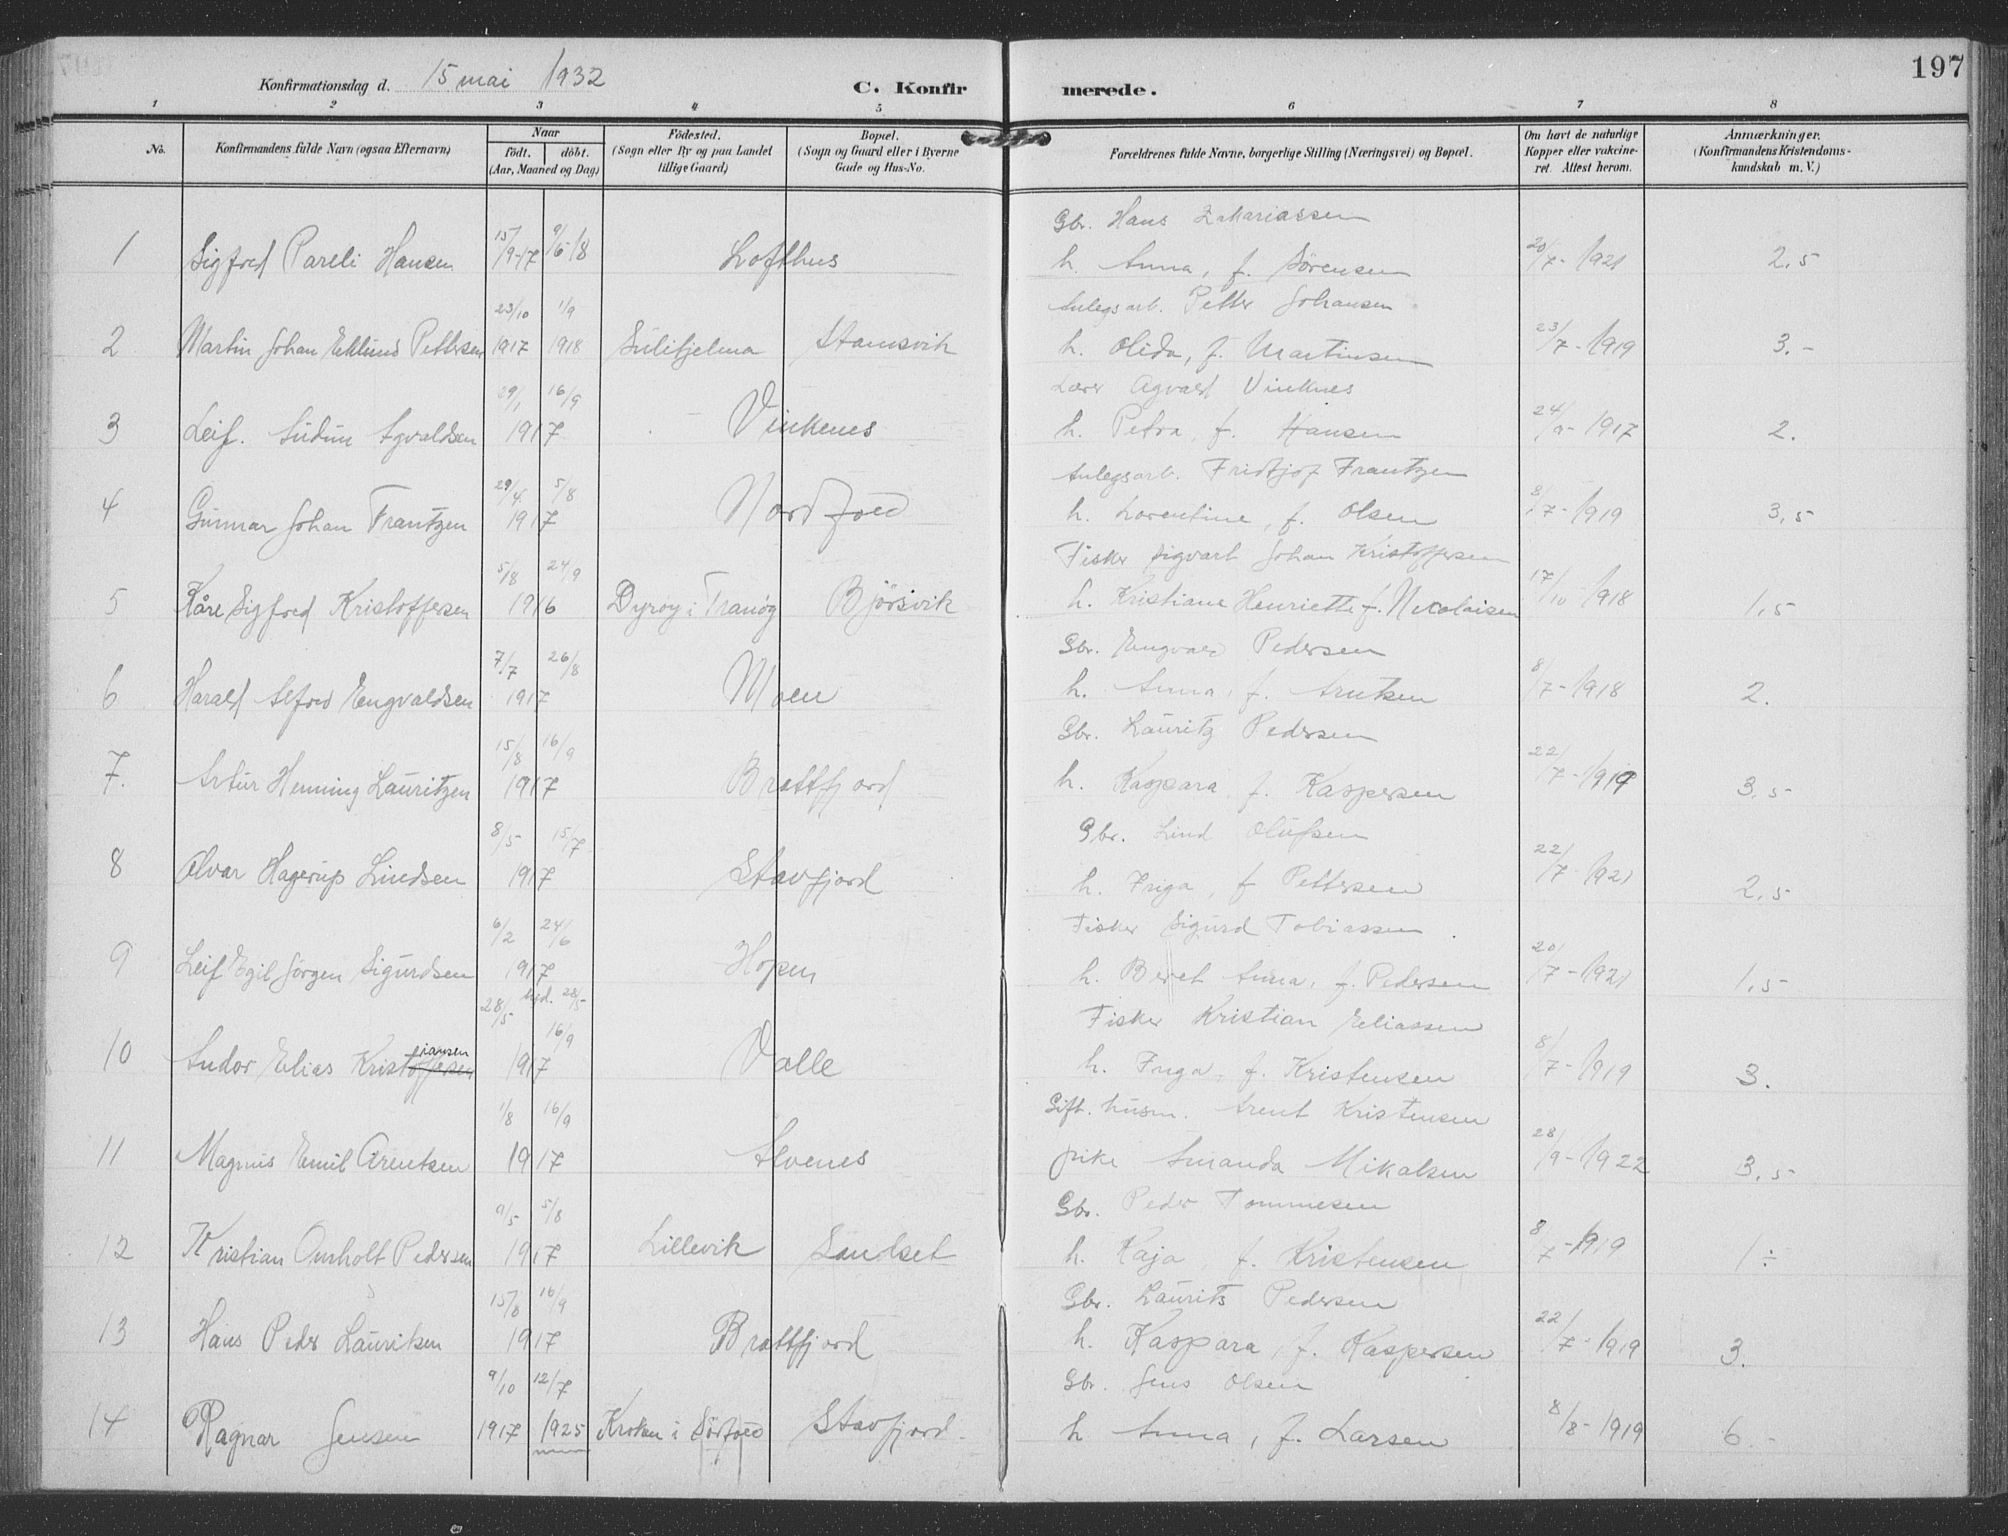 197
Konfirmationsdag d. 15 mai 1932 C. Konfirmerede.
1 2 3 4 5 6 7 8
No. Konfirmandens fulde Navn (ogsaa Efternavn) Naar født. døbt. (Aar, Maaned og Dag) Fødested. (Sogn eller By og paa Landet tillige Gaard) Bopæl. (Sogn og Gaard eller i Byerne Gade og Hus-No. Forældrenes fulde Navne, borgerlige Stilling (Næringsvei) og Bopæl. Om havt de naturlige Kopper eller vakcineret. Attest herom. Anmærkninger. (Konfirmandens Kristendomskundskab m. V.)
15/9-17 9/5-18 Gbr. Hans Zakariassen
1 Sigfred Pareli Hansen Lofthus h. Anna, f. Sørensen 20/7-1921 2,5
23/10 1/9 Anlegsarb. Petter Johansen
2 Martin Johan Eklund Pettersen 1917 1918 Sulitjelma Stamsvik h. Olida, f. Martinsen 23/7-1919 3.-
29/1 16/9 Lærer Agvald Vinknes
3 Leif. Audun Agvaldsen 1917 Vinkenes h. Petra, f. Hansen 24/9-1917 2.
29/4 5/8 Anlegsarb. Fridtjof Frantzen
4 Gunnar Johan Frantzen 1917 Nordfold h. Lorentine, f. Olsen 8/7-1919 3,5
5/8 24/9 Fisker Sigvart Johan Kristoffersen
5 Kåre Sigfred Kristoffersen 1916 Dyrøy i Tranøy Bjørsvik h. Kristiane Henriette f. Nikolaisen 17/10-1918 1,5
7/7 26/8 Gbr. Engvald Pedersen
6 Harald Alfred Engvaldsen 1917 Moen h. Anna, f. Arntsen 8/7-1918 2.
15/8 16/9 Gbr. Lauritz Pedersen
7. Artur Henning Lauritzen 1917 Brattfjord h. Kaspara f. Kaspersen 22/7-1919 3,5
8/5 15/7 Gbr. Lind Olufsen
8 Alvar Hagerup Lindsen 1917 Stavfjord h. Friga, f Pettersen 22/7-1921 2,5
6/2 24/6 Fisker Sigurd Tobiassen
9 Leif Egil Jørgen Sigurdsen 1917 Hopen h. Beret Anna, f. Pedersen 20/7-1921 1,5
28/5 hjd. 28/5 16/9 Fisker Kristian Eliassen
10 Andor Elias Kristoffersen iansen 1917 Valle h. Inga, f. Kristensen 8/7-1919 3.
1/8 16/9 Gift. husm. Arent Kristensen
11 Magnus Emil Arentsen 1917 Alvenes pike Amanda Mikalsen 28/9-1922 3,5
9/5 5/8 Gbr. Peder Tommesen
12 Kristian Omholt Pedersen 1917 Lillevik Sandset h. Kaja f. Kristensen 8/7-1919 1÷
15/8 16/9 Gbr. Laurits Pedersen
13 Hans Peder Lauritsen 1917 Brattfjord h. Kaspara, f. Kaspersen 22/7-1919 3.
9/10 12/7 Gbr Jens Olsen
14 Ragnar Jensen 1917 1925 Kroken i Sørfold Stavfjord. h Anna, f. Larsen 8/8-1919 6.-